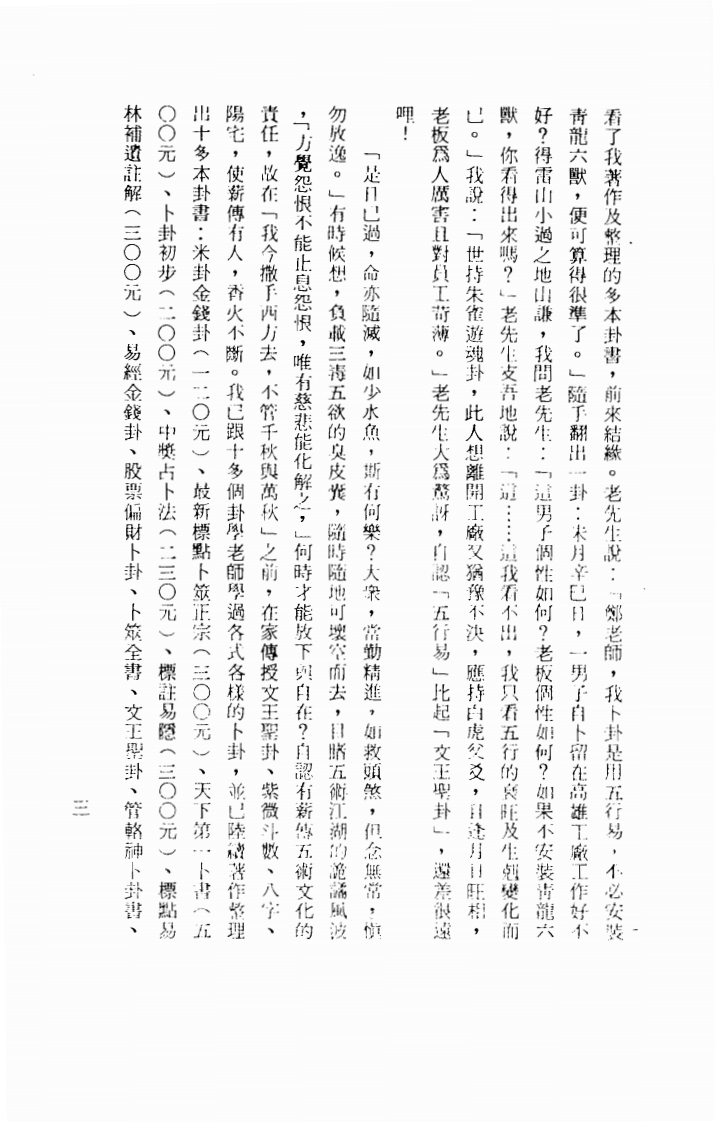 看了我著作及整理的多本卦書，前來結緣。老先生說：「鄭老師，我卜卦是用五行易，不必安裝
靑龍六獸，便可算得很準了。」隨手翻出一卦：未月辛巳日，一男子自卜留在高雄工廠工作好不
好？得雷山小過之地山謙，我問老先生：「這男子個性如何？老板個性如何？如果不安裝靑龍六
獸，你看得出來嗎？」老先生支吾地說：「這……這我看不出，我只看五行的衰旺及生剋變化而
已。」我說：「世持朱雀遊魂卦，此人想離開工廠又猶豫不決，應持白虎父爻，且逢月日旺相，
老板爲人厲害且對員工苛薄。」老先生大爲驚訝，自認「五行易」比起「文王聖卦」，還差很遠
哩！
「是日已過，命亦隨滅，如少水魚，斯有何樂？大衆，當勤精進，如救頭煞，但念無常，慎
勿放逸。」有時候想，負載三毒五欲的臭皮囊，隨時隨地可壞空而去，目睹五術江湖的詭譎風波
，「方覺怨恨不能止息怨恨，唯有慈悲能化解之，」何時才能放下與自在？自認有薪傳五術文化的
責任，故在「我今撒手西方去，不管千秋與萬秋」之前，在家傳授文王聖卦、紫微斗數、八字、
陽宅，使薪傳有人，香火不斷。我已跟十多個卦學老師學過各式各樣的卜卦，並已陸續著作整理
出十多本卦書：米卦金錢卦（一二〇元）、最新標點卜筮正宗（三〇〇元）、天下第一卜書（五
〇〇元）、卜卦初步（二〇〇元）、中獎占卜法（二三〇元）、標註易隱（三〇〇元）、標點易
林補遺註解（三〇〇元）、易經金錢卦、股票偏財卜卦、卜筮全書、文王聖卦、管輅神卜卦書、
三